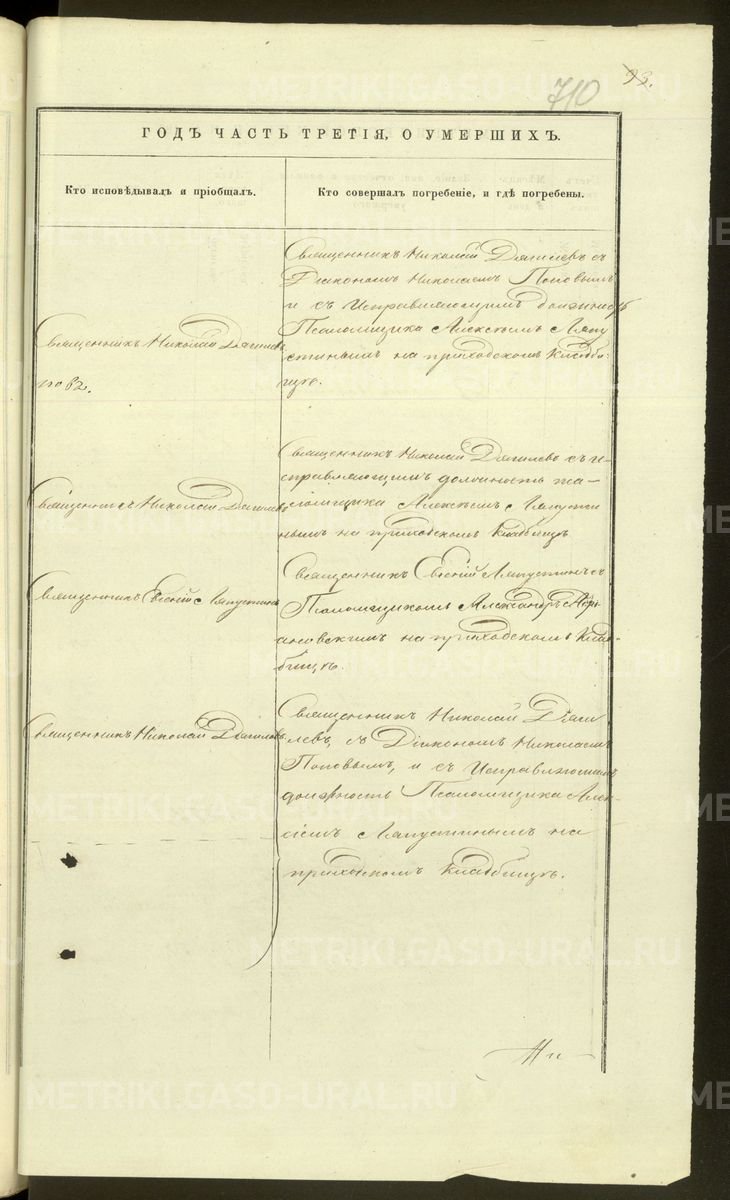 93.
710
ГОДЪ ЧАСТЬ ТРЕТІЯ, О УМЕРШИХЪ.
Кто исповѣдывалъ и пріобщалъ.
Кто совершалъ погребеніе, и гдѣ погребены.
Священникъ Николай Дягилевъ
Священникъ Николай Дягилевъ съ
Діакономъ Николаемъ Поповымъ
и съ Исправляющимъ должность
Псаломщика Алексѣемъ Ляпу
стинымъ на приходскомъ кладби-
щѣ.
Священникъ Николай Дягилевъ
Священникъ Николай Дягилевъ съ и-
справляющимъ должность пса-
ломщика Алексѣемъ Ляпусти
нымъ на приходскомъ кладбищѣ
Священникъ Евгеній Ляпустинъ
Священникъ Евгеній Ляпустинъ съ
Псаломщикомъ Александр
ановскимъ на приходскомъ клад-
бищѣ.
Священникъ Николай Дягилевъ
Священникъ Николай Дяги
левъ, съ Діакономъ Николаемъ
Поповымъ, и съ Исправляющимъ
должность Псаломщика Алек-
сіемъ Ляпустинымъ на
приходскомъ кладбищѣ.
METRIKI.GASO-URAL.RU